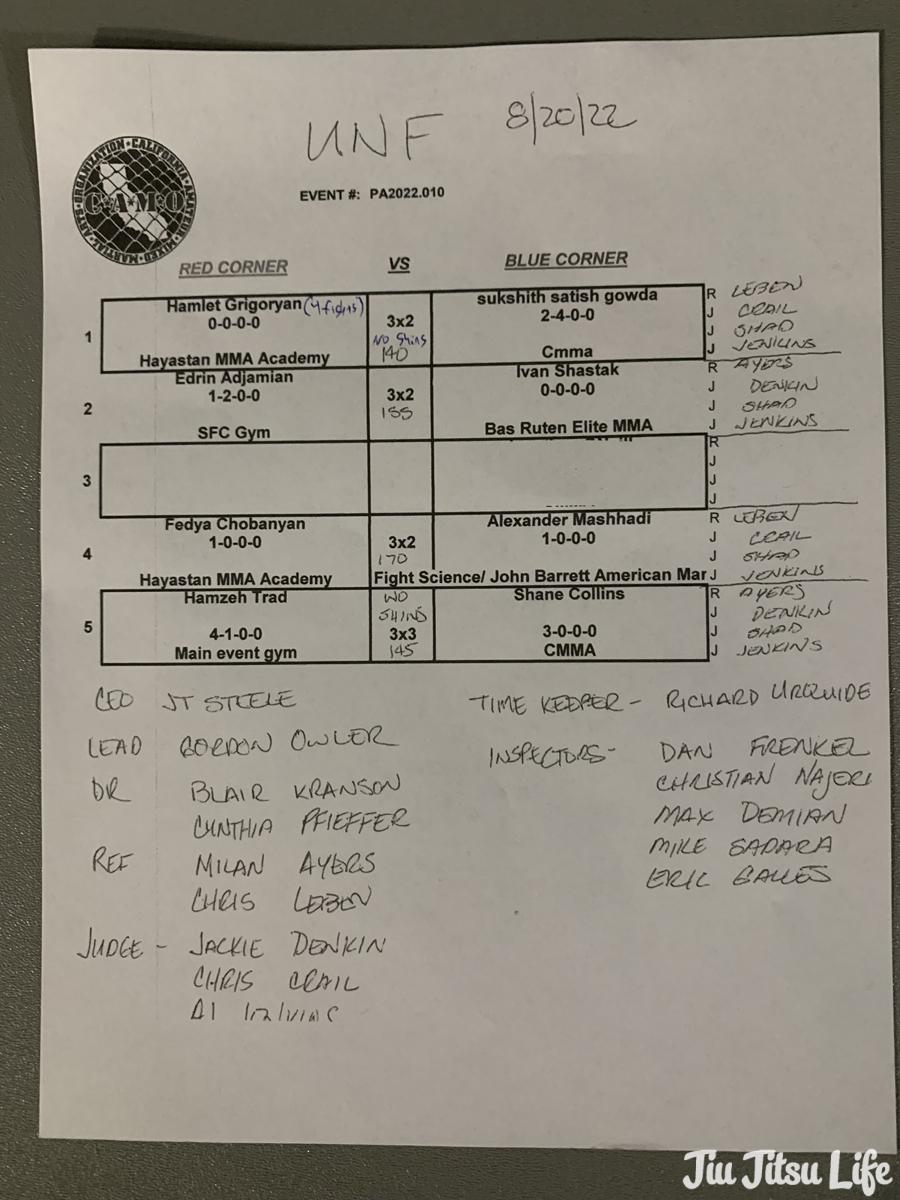 UNF 8/20/22
ORGANIZATION • CALIFORNIA AMATEUR MIXED MARTIAL ARTS
C★A★M★O
EVENT #: PA2022.010
RED CORNER VS BLUE CORNER
Hamlet Grigoryan (4 fights) sukshith satish gowda R LEBEN
1 0-0-0-0 3x2 2-4-0-0 J CRAIL
NO Shins J SHAD
Hayastan MMA Academy 140 Cmma J JENKINS
Edrin Adjamian Ivan Shastak R AYERS
2 1-2-0-0 3x2 0-0-0-0 J DENKIN
155 J SHAD
SFC Gym Bas Ruten Elite MMA J JENKINS
R
3 J
J
J
Fedya Chobanyan Alexander Mashhadi R LEBEN
4 1-0-0-0 3x2 1-0-0-0 J CRAIL
170 J SHAD
Hayastan MMA Academy Fight Science/ John Barrett American Mar J JENKINS
Hamzeh Trad NO Shane Collins R AYERS
SHINS J DENKIN
5 4-1-0-0 3x3 3-0-0-0 J SHAD
Main event gym 145 CMMA J JENKINS
CEO JT STEELE TIME KEEPER - RICHARD URQUIDE
LEAD GORDON OWLER INSPECTORS - DAN FRENKEL
DR BLAIR KRANSON CHRISTIAN NAJERI
CYNTHIA PFIEFFER MAX DEMIAN
REF MILAN AYERS MIKE SADARA
CHRIS LEBEN ERIC
JUDGE - JACKIE DENKIN
CHRIS CRAIL
Jiu Jitsu Life